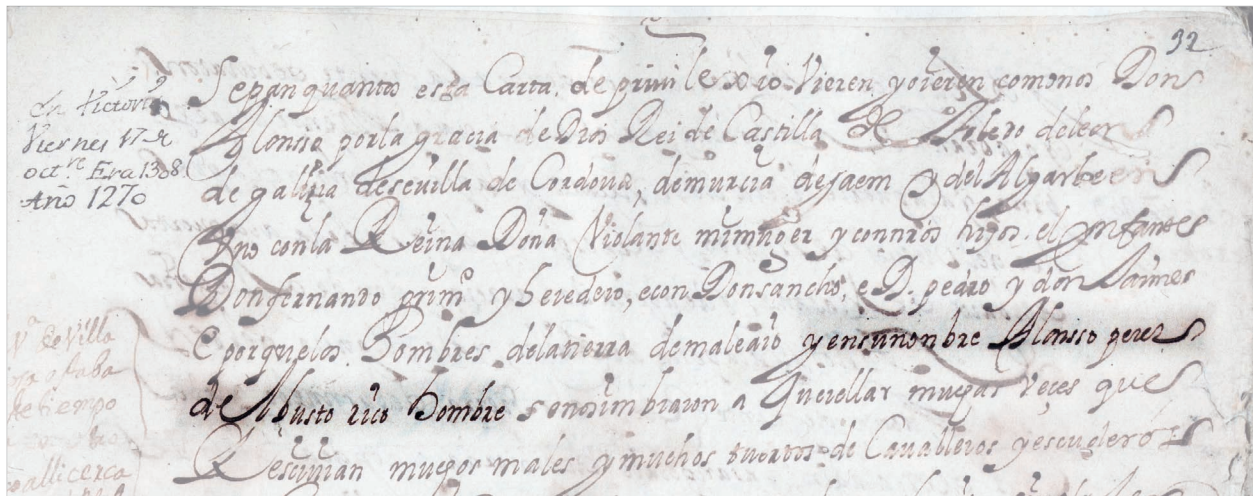 32
En Victoria
Viernes 17 de
oct.re Era 1308
Año 1270
Sepan quantos esta Carta de privilexio Vieren y oieren como nos Don
Alonsso por la gracia de Dios Rei de Castilla de Toledo de leon
de galizia de sevilla de Cordova, de murcia de jaem y del Algarbe en
Uno con la Reina Doña Violante mi muger y con nros hijos el Ynfante
Don fernando prim.o y heredero, e con Don sancho, e D. pedro y don Jaime
E por que los Hombres de la tierra de y en su nonbre Alonsso perez
de Abusto rico Hombre se nos imbiaron a Querellar muchas veçes que
Resçivian muchos males y muchos tuertos de Cavalleros y escuderos
de Villa
tiempo
alli cerca